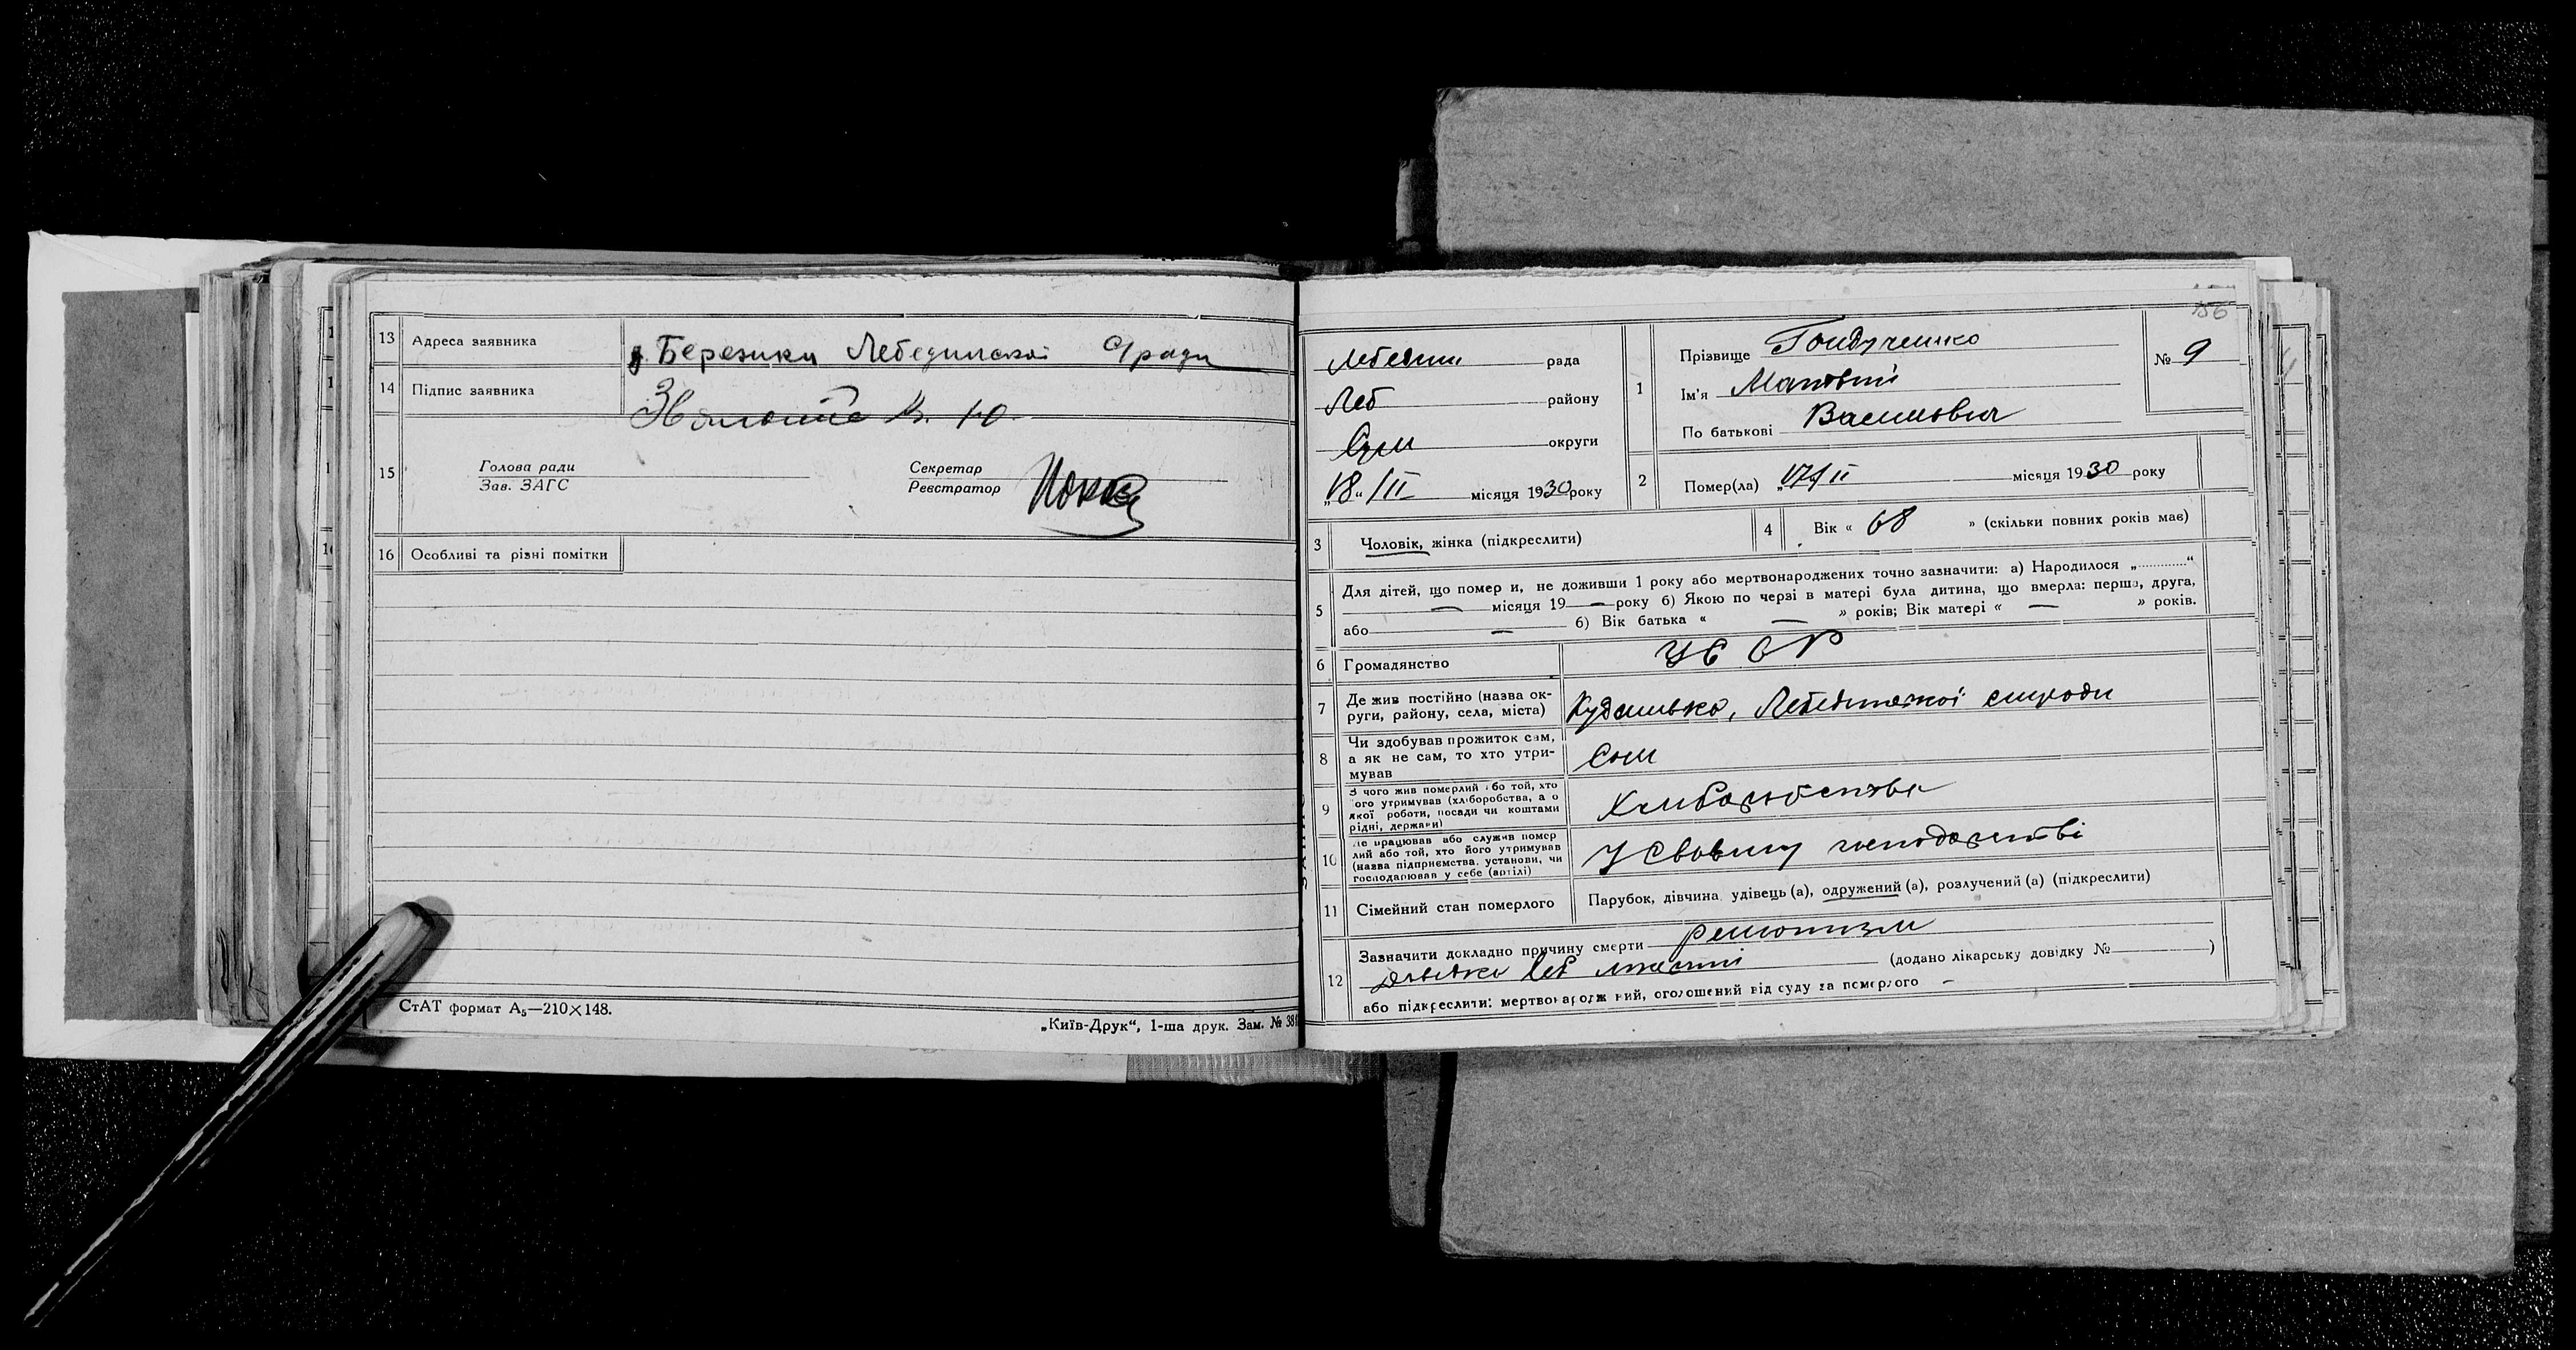 13 Адреса заявника Березики Лебединської с/ради
14 Підпис заявника
15 Голова ради Секретар
Зав. ЗАГС Реєстратор
16 Особливі та різні помітки
СтАТ формат А₅—210×148.
„Київ-Друк“, 1-ша друк. Зам. № 38
156
Лебедин рада
Леб району
Сум округи
„18“ /II місяця 1930 року
1 Прізвище
Ім'я Матвій
По батькові Васильович
№ 9
2 Помер(ла) „17“ II місяця 1930 року
3 Чоловік, жінка (підкреслити)
4 Вік « 68 » (скільки повних років має)
5 Для дітей, що помер и, не доживши 1 року або мертвонароджених точно зазначити: а) Народилося „............“
— місяця 19 — року б) Якою по черзі в матері була дитина, що вмерла: перша, друга,
або — б) Вік батька « — » років; Вік матері « — » років.
6 Громадянство УССР
7 Де жив постійно (назва ок-
руги, району, села, міста) Лебединської сільради
8 Чи здобував прожиток сам,
а як не сам, то хто утри-
мував Сам
9 З чого жив померлий або той, хто
його утримував (хліборобства, а о
якої роботи, посади чи коштами
рідні, держави) Хліборобства
10 Де працював або служив помер
лий або той, хто його утримував
(назва підприємства, установи, чи
господарював у себе (артілі) У своєму господарстві
11 Сімейний стан померлого Парубок, дівчина, удівець (а), одружений (а), розлучений (а) (підкреслити)
12 Зазначити докладно причину смерти ревматизм
довідка Леб (додано лікарську довідку № )
або підкреслити: мертвонароджений, оголошений від суду за померлого —